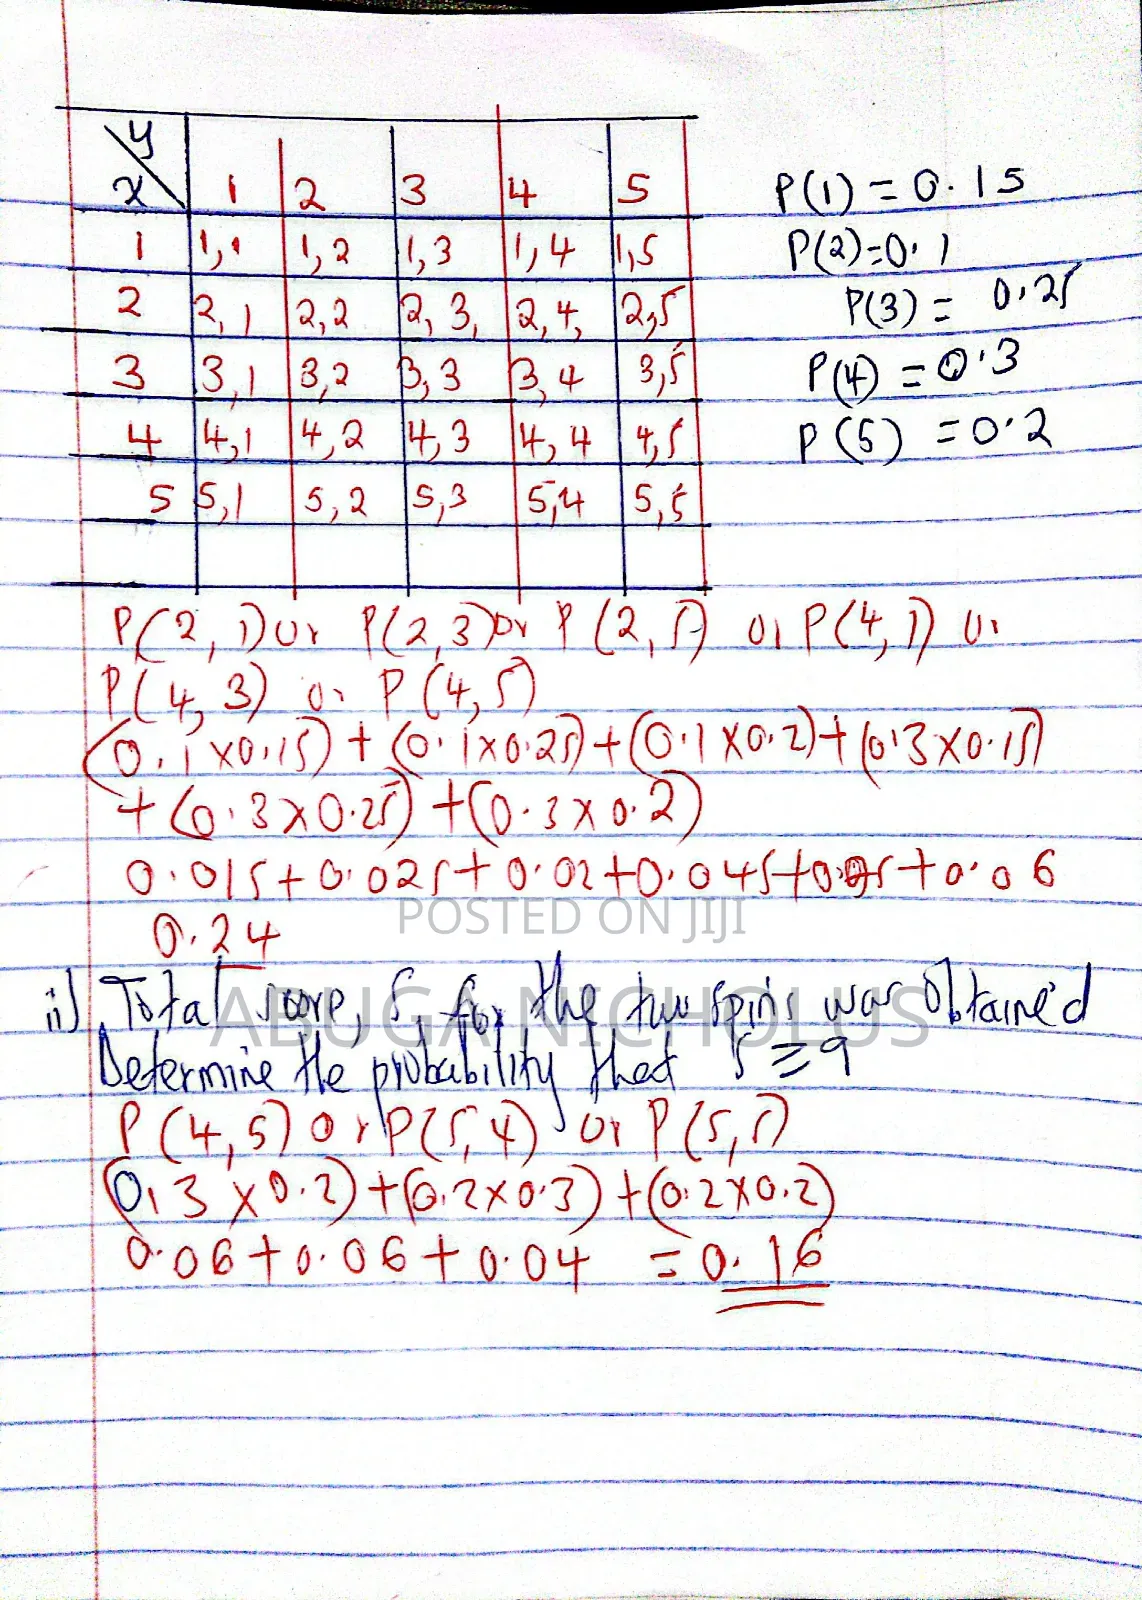 y
x 1 2 3 4 5
1 1,1 1,2 1,3 1,4 1,5
2 2,1 2,2 2,3, 2,4, 2,5
3 3,1 3,2 3,3 3,4 3,5
4 4,1 4,2 4,3 4,4 4,5
5 5,1 5,2 5,3 5,4 5,5
P(1) = 0.15
P(2)=0.1
P(3) = 0.25
P(4) = 0.3
P(5) = 0.2
P(2,1) or P(2,3) or P(2,5) or P(4,1) or
P(4,3) or P(4,5)
(0.1x0.15) + (0.1x0.25) + (0.1x0.2) + (0.3x0.15)
+ (0.3x0.25) + (0.3x0.2)
0.015 + 0.025 + 0.02 + 0.045 + + 0.06
POSTED ON JIJI
0.24
ABUGA NICHOLUS
ii) Total score, S, for the two spins was obtained
Determine the probability that S ≥ 9
P(4,5) or P(5,4) or P(5,5)
(0.3 x 0.2) + (0.2x0.3) + (0.2x0.2)
0.06 + 0.06 + 0.04 = 0.16